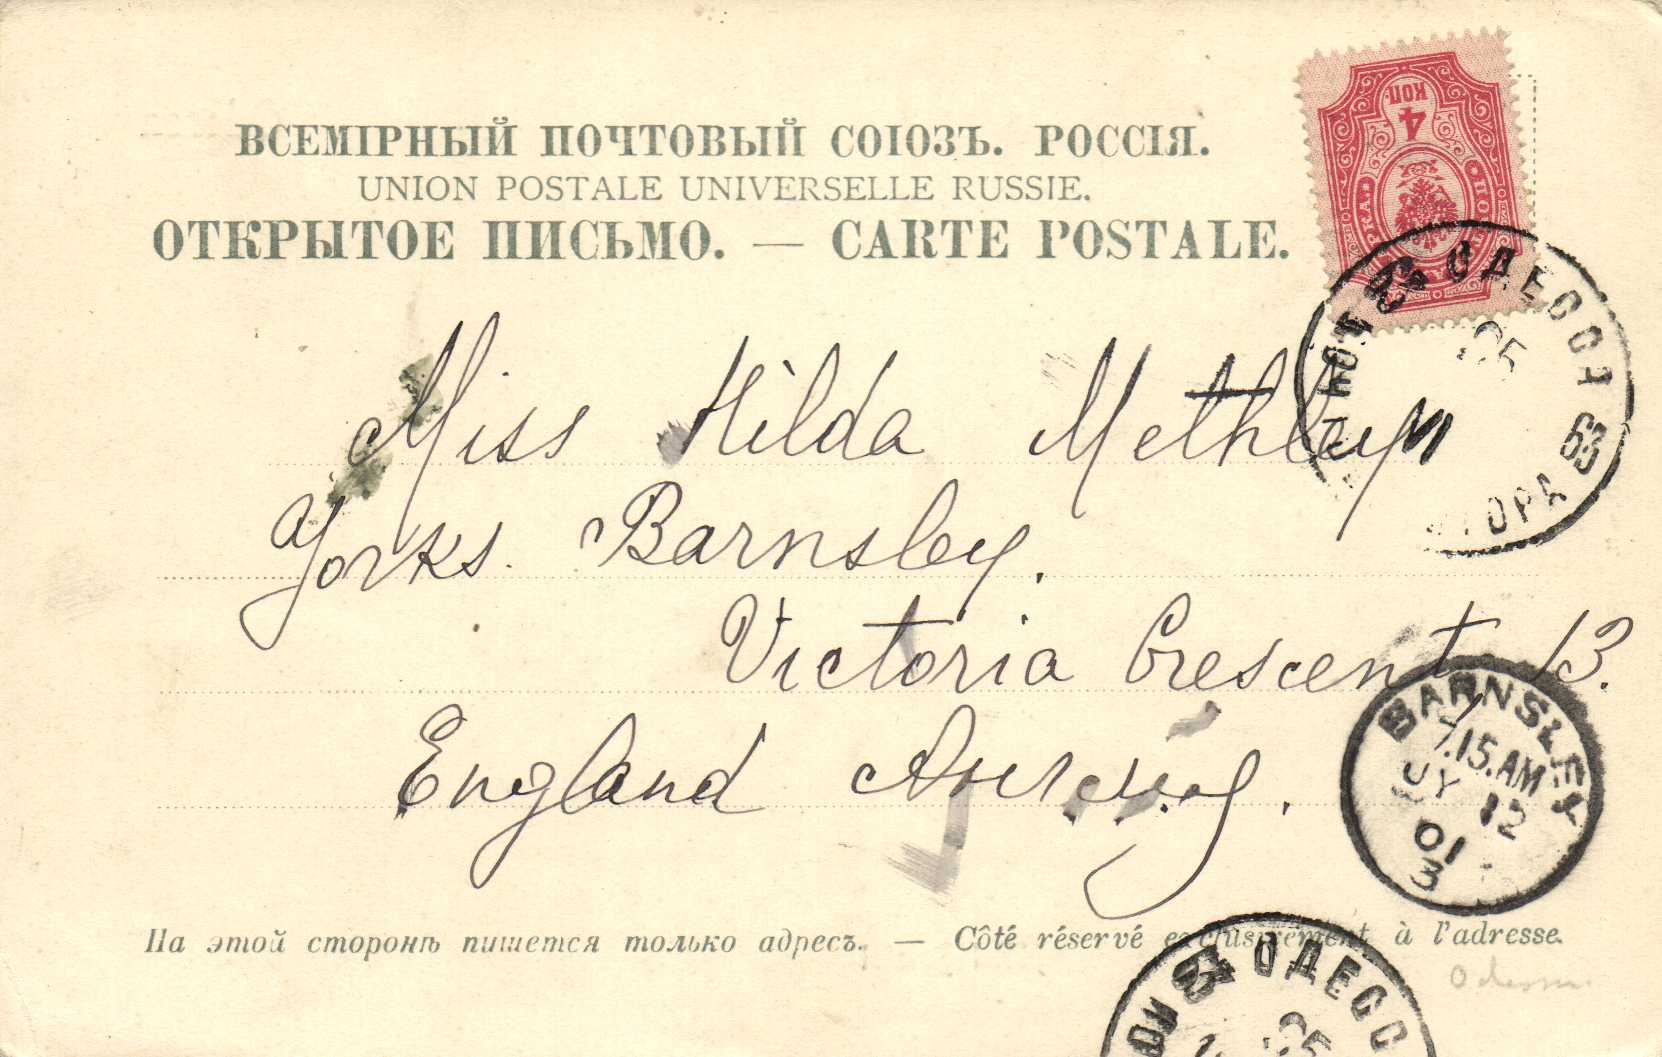 ВСЕМІРНЫЙ ПОЧТОВЫЙ СОЮЗЪ. РОССІЯ.
UNION POSTALE UNIVERSELLE RUSSIE.
ОТКРЫТОЕ ПИСЬМО. — CARTE POSTALE.
4
КОП
ОДЕССА
25
VI
63
Miss Hilda Methley
Yorks. Barnsley.
Victoria Crescent 13.
England
BARNSLEY
7.15.AM
JY 12
01
3
На этой сторонѣ пишется только адресъ. — Côté réservé exclusivement à l'adresse.
Odessa
ОДЕСС
25